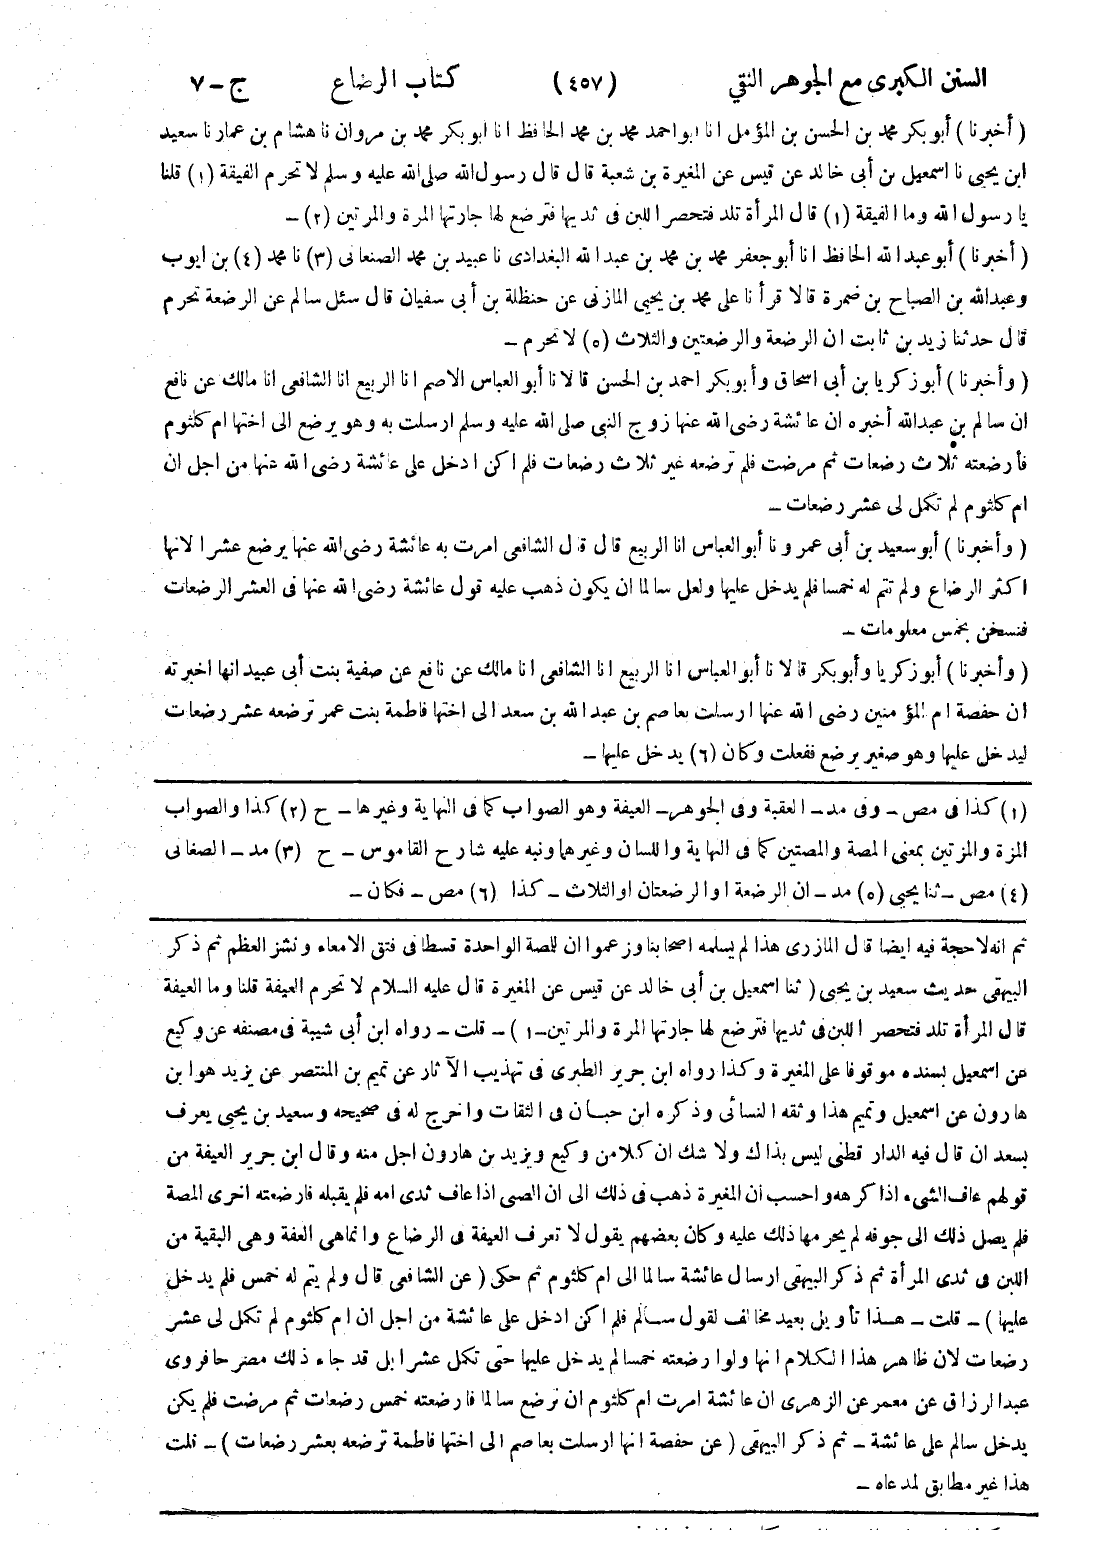 السنن الكبرى مع الجوهر النقي (٤٥٧) كتاب الرضاع ج ـ ٧
( أخبرنا ) أبو بكر محمد بن الحسن بن المؤمل انا ابو احمد محمد بن محمد الحافظ انا ابو بكر محمد بن مروان نا هشام بن عمار نا سعيد
ابن يحيى نا اسمعيل بن أبى خالد عن قيس عن المغيرة بن شعبة قال قال رسول الله صلى الله عليه وسلم لا تحرم الفيقة (١) قلنا
يا رسول الله وما الفيقة (١) قال المرأة تلد فتحصر اللبن فى ثديها فترضع لها جارتها المرة والمرتين (٢) ـ
( أخبرنا ) أبو عبد الله الحافظ انا أبو جعفر محمد بن محمد بن عبد الله البغدادى نا عبيد بن محمد الصنعانى (٣) نا محمد (٤) بن ايوب
وعبدالله بن الصباح بن ضمرة قالا قرأنا على محمد بن يحيى المازنى عن حنظلة بن أبى سفيان قال سئل سالم عن الرضعة تحرم
قال حدثنا زيد بن ثابت ان الرضعة والرضعتين والثلاث (٥) لا تحرم ـ
( وأخبرنا ) أبو زكريا بن أبى اسحاق وأبو بكر احمد بن الحسن قالا نا أبو العباس الاصم انا الربيع انا الشافعى انا مالك عن نافع
ان سالم بن عبدالله أخبره ان عائشة رضى الله عنها زوج النبى صلى الله عليه وسلم ارسلت به وهو يرضع الى اختها ام كلثوم
فأرضعته ثلاث رضعات ثم مرضت فلم ترضعه غير ثلاث رضعات فلم اكن ادخل على عائشة رضى الله عنها من اجل ان
ام كلثوم لم تكمل لى عشر رضعات ـ
( وأخبرنا ) أبو سعيد بن أبى عمرو نا أبو العباس انا الربيع قال قال الشافعى امرت به عائشة رضى الله عنها يرضع عشرا لانها
اكثر الرضاع ولم تتم له خمسا فلم يدخل عليها ولعل سالما ان يكون ذهب عليه قول عائشة رضى الله عنها فى العشر الرضعات
فنسخن بخمس معلومات ـ
( وأخبرنا ) أبو زكريا وأبو بكر قالا نا أبو العباس انا الربيع انا الشافعى انا مالك عن نافع عن صفية بنت أبى عبيد انها اخبرته
ان حفصة ام المؤمنين رضى الله عنها ارسلت بعاصم بن عبد الله بن سعد الى اختها فاطمة بنت عمر ترضعه عشر رضعات
ليدخل عليها وهو صغير يرضع ففعلت وكان (٦) يدخل عليها ـ
(١) كذا فى مص ـ وفى مد ـ العقبة وفى الجوهر ـ العيفة وهو الصواب كما فى النهاية وغيرها ـ ح (٢) كذا والصواب
المزة والمزتين بمعنى المصة والمصتين كما فى النهاية واللسان وغيرهما ونبه عليه شارح القاموس ـ ح (٣) مد ـ الصغانى
(٤) مص ـ ثنا يحيى (٥) مد ـ ان الرضعة او الرضعتان او الثلاث ـ كذا (٦) مص ـ فكان ـ
ثم انه لاحجة فيه ايضا قال المازرى هذا لم يسلمه اصحابنا وزعموا ان للمصة الواحدة قسطا فى فتق الامعاء ونشز العظم ثم ذكر
البيهقى حديث سعيد بن يحيى ( ثنا اسمعيل بن أبى خالد عن قيس عن المغيرة قال عليه السلام لا تحرم العيفة قلنا وما العيفة
قال المرأة تلد فتحصر اللبن فى ثديها فترضع لها جارتها المرة والمرتين ـ ١ ) ـ قلت ـ رواه ابن أبى شيبة فى مصنفه عن وكيع
عن اسمعيل بسنده موقوفا على المغيرة وكذا رواه ابن جرير الطبرى فى تهذيب الآثار عن تميم بن المنتصر عن يزيد هو ابن
هارون عن اسمعيل وتميم هذا وثقه النسائى وذكره ابن حبان فى الثقات واخرج له فى صحيحه وسعيد بن يحيى يعرف
بسعدان قال فيه الدار قطنى ليس بذاك ولا شك ان كلا من وكيع ويزيد بن هارون اجل منه وقال ابن جرير العيفة من
قولهم عاف الشىء اذا كرهه واحسب ان المغيرة ذهب فى ذلك الى ان الصبى اذا عاف ثدى امه فلم يقبله فارضعته اخرى المصة
فلم يصل ذلك الى جوفه لم يحرمها ذلك عليه وكان بعضهم يقول لا تعرف العيفة فى الرضاع وانما هى العفة وهى البقية من
اللبن فى ثدى المرأة ثم ذكر البيهقى ارسال عائشة سالما الى ام كلثوم ثم حكى ( عن الشافعى قال ولم يتم له خمس فلم يدخل
عليها ) ـ قلت ـ هذا تأويل بعيد مخالف لقول سالم فلم اكن ادخل على عائشة من اجل ان ام كلثوم لم تكمل لى عشر
رضعات لان ظاهر هذا الكلام انها ولو ارضعته خمسا لم يدخل عليها حتى تكمل عشرا بل قد جاء ذلك مصرحا فروى
عبد الرزاق عن معمر عن الزهرى ان عائشة امرت ام كلثوم ان ترضع سالما فارضعته خمس رضعات ثم مرضت فلم يكن
يدخل سالم على عائشة ـ ثم ذكر البيهقى ( عن حفصة انها ارسلت بعاصم الى اختها فاطمة ترضعه بعشر رضعات ) ـ قلت
هذا غير مطابق لمدعاه ـ